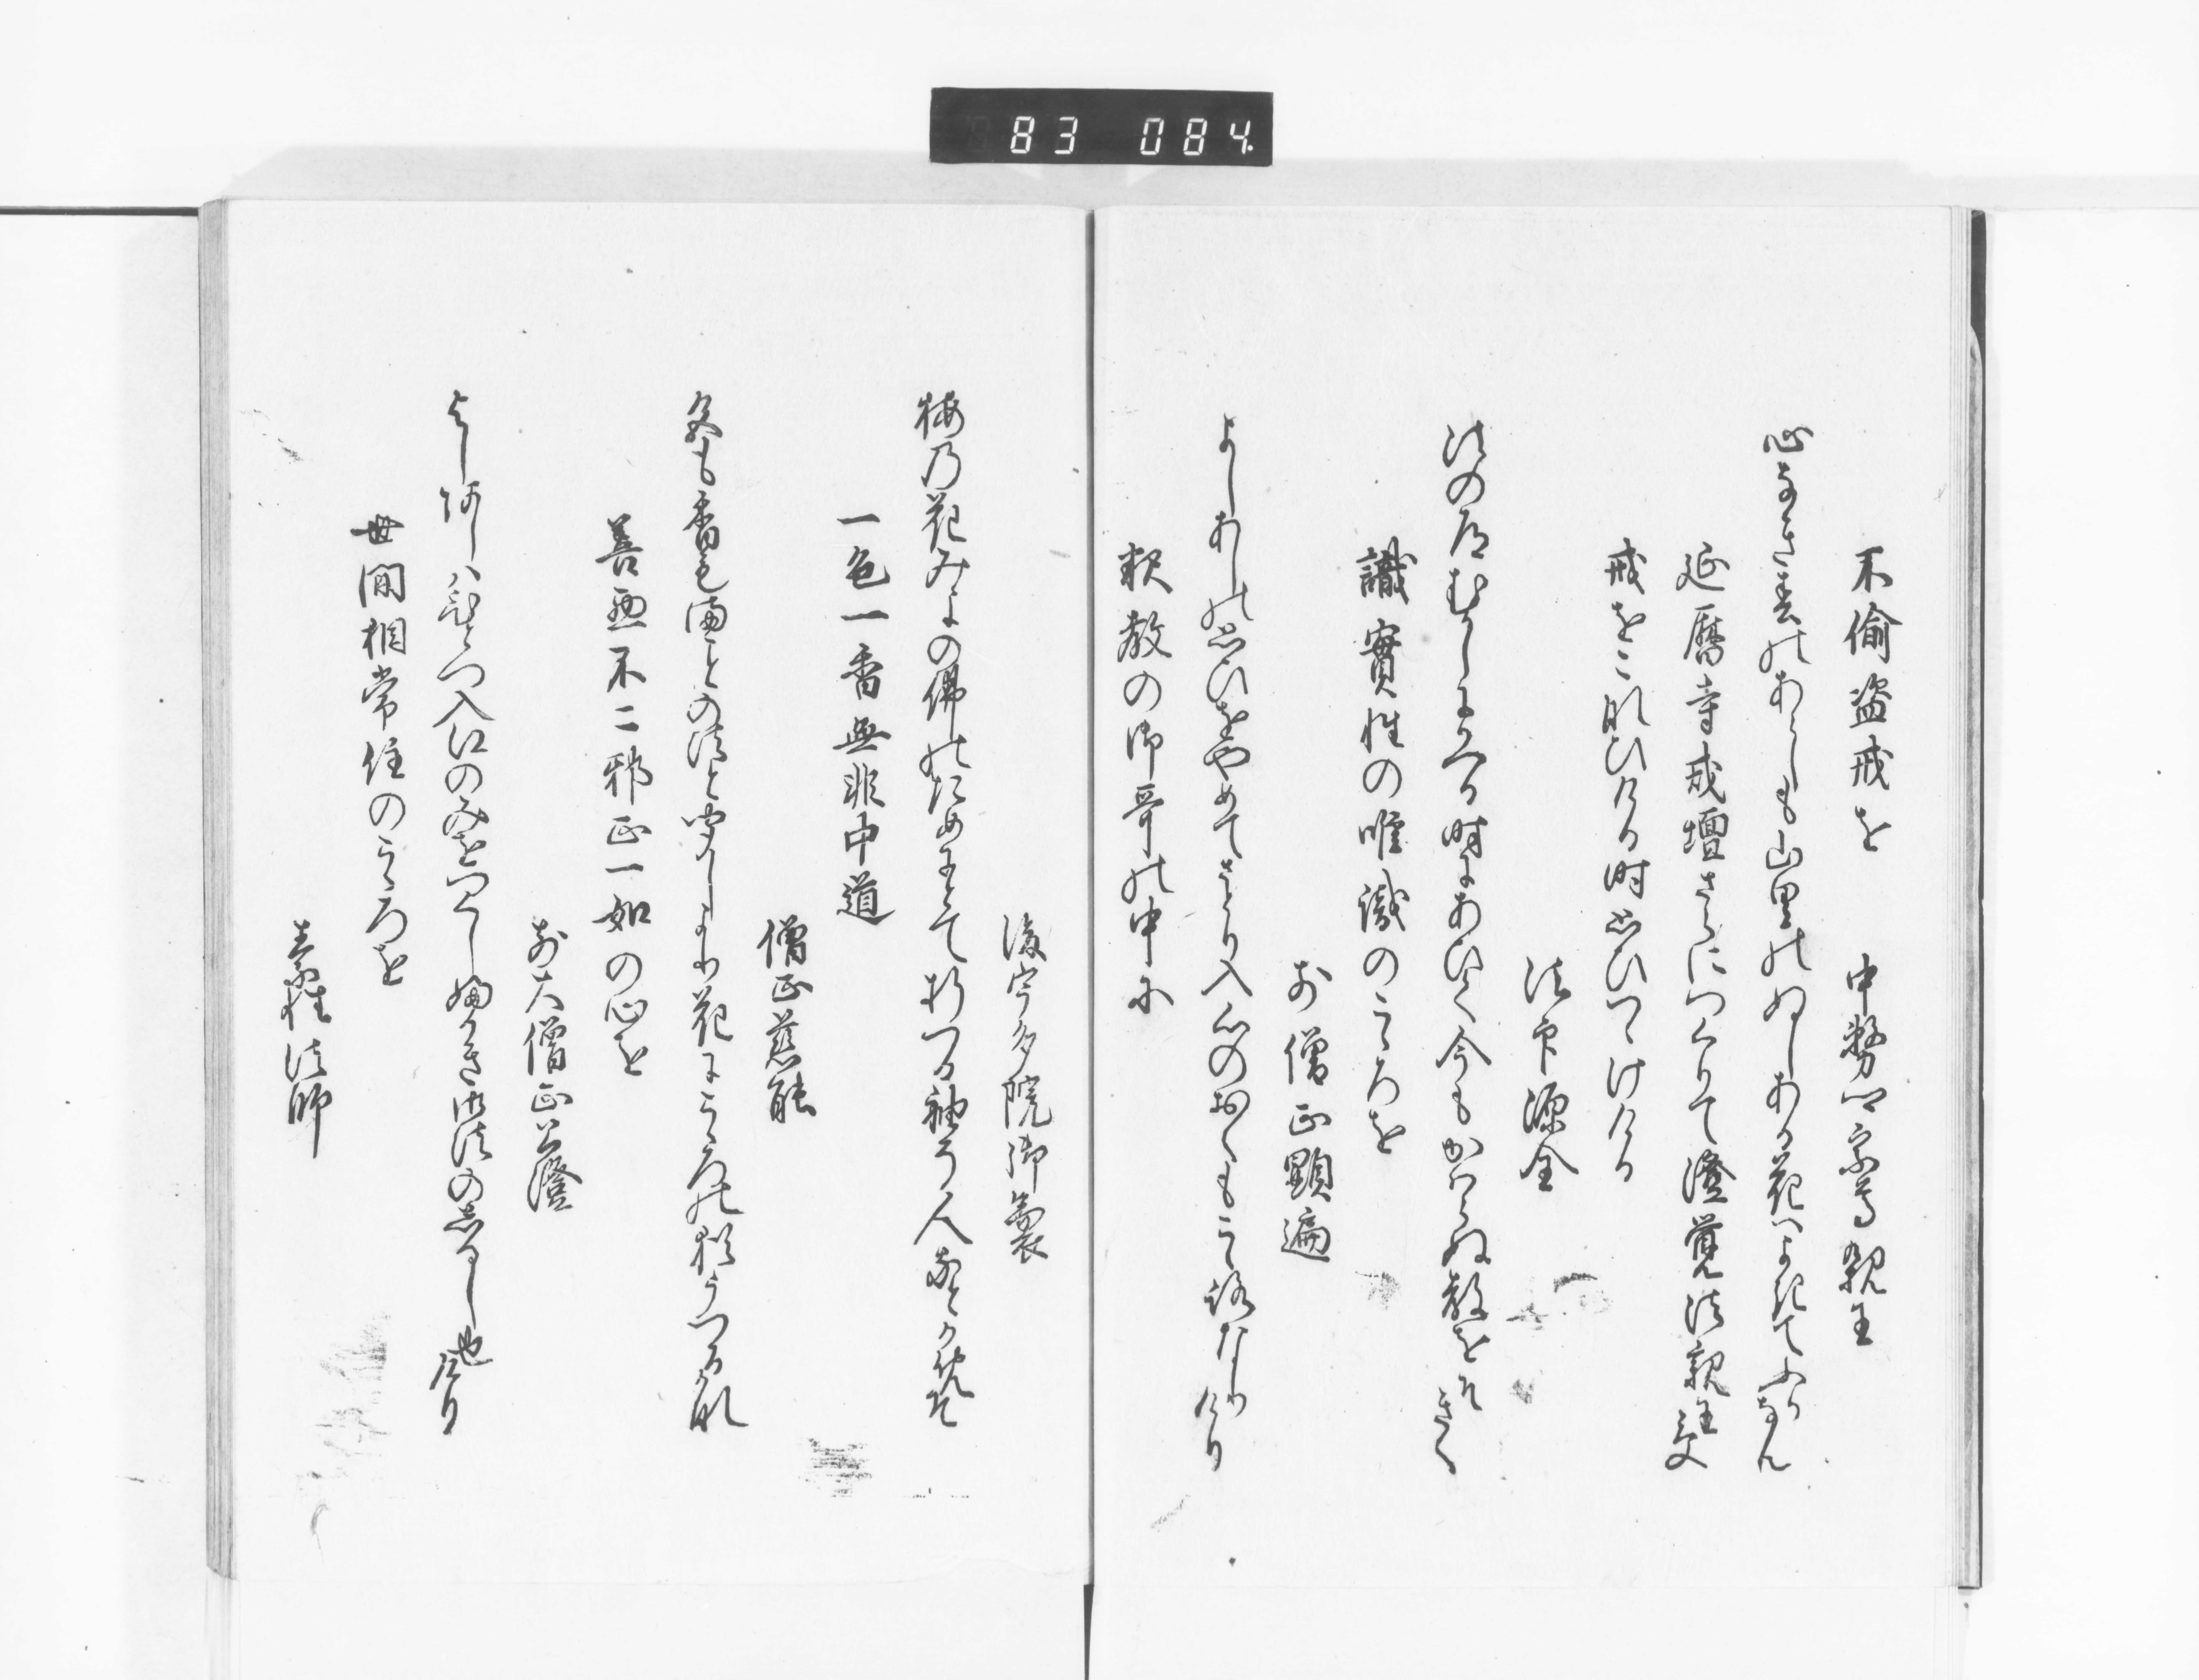 83 084.
不偸盗戒を　中務卿宗尊親王
心なき春のあらしも山里のぬしある花はよきてふかなん
延暦寺戒壇さらにつくりて澄覚法親王受
戒をこなひける時思ひつゝけける
法印源全
法の道むかしにかへる時にあひて今もかはらぬ教をそきく
識實性の唯識のこゝろを
前僧正顕遍
よしあしの思ひをやめてさとり入心のおくもこゝろなりけり
釈教の御哥の中に
後宇多院御製
梅乃花みよの佛のためにとて折つる袖を人なとかめそ
一色一香無非中道
僧正慈能
色も香もまことの法と聞しより花にこゝろの猶うつるかな
善悪不二邪正一如の心を
前大僧正公澄
よしあしハひとつ入江のみをつくしふかき御法のしるし也けり
世間相常住のこゝろを
素性法師